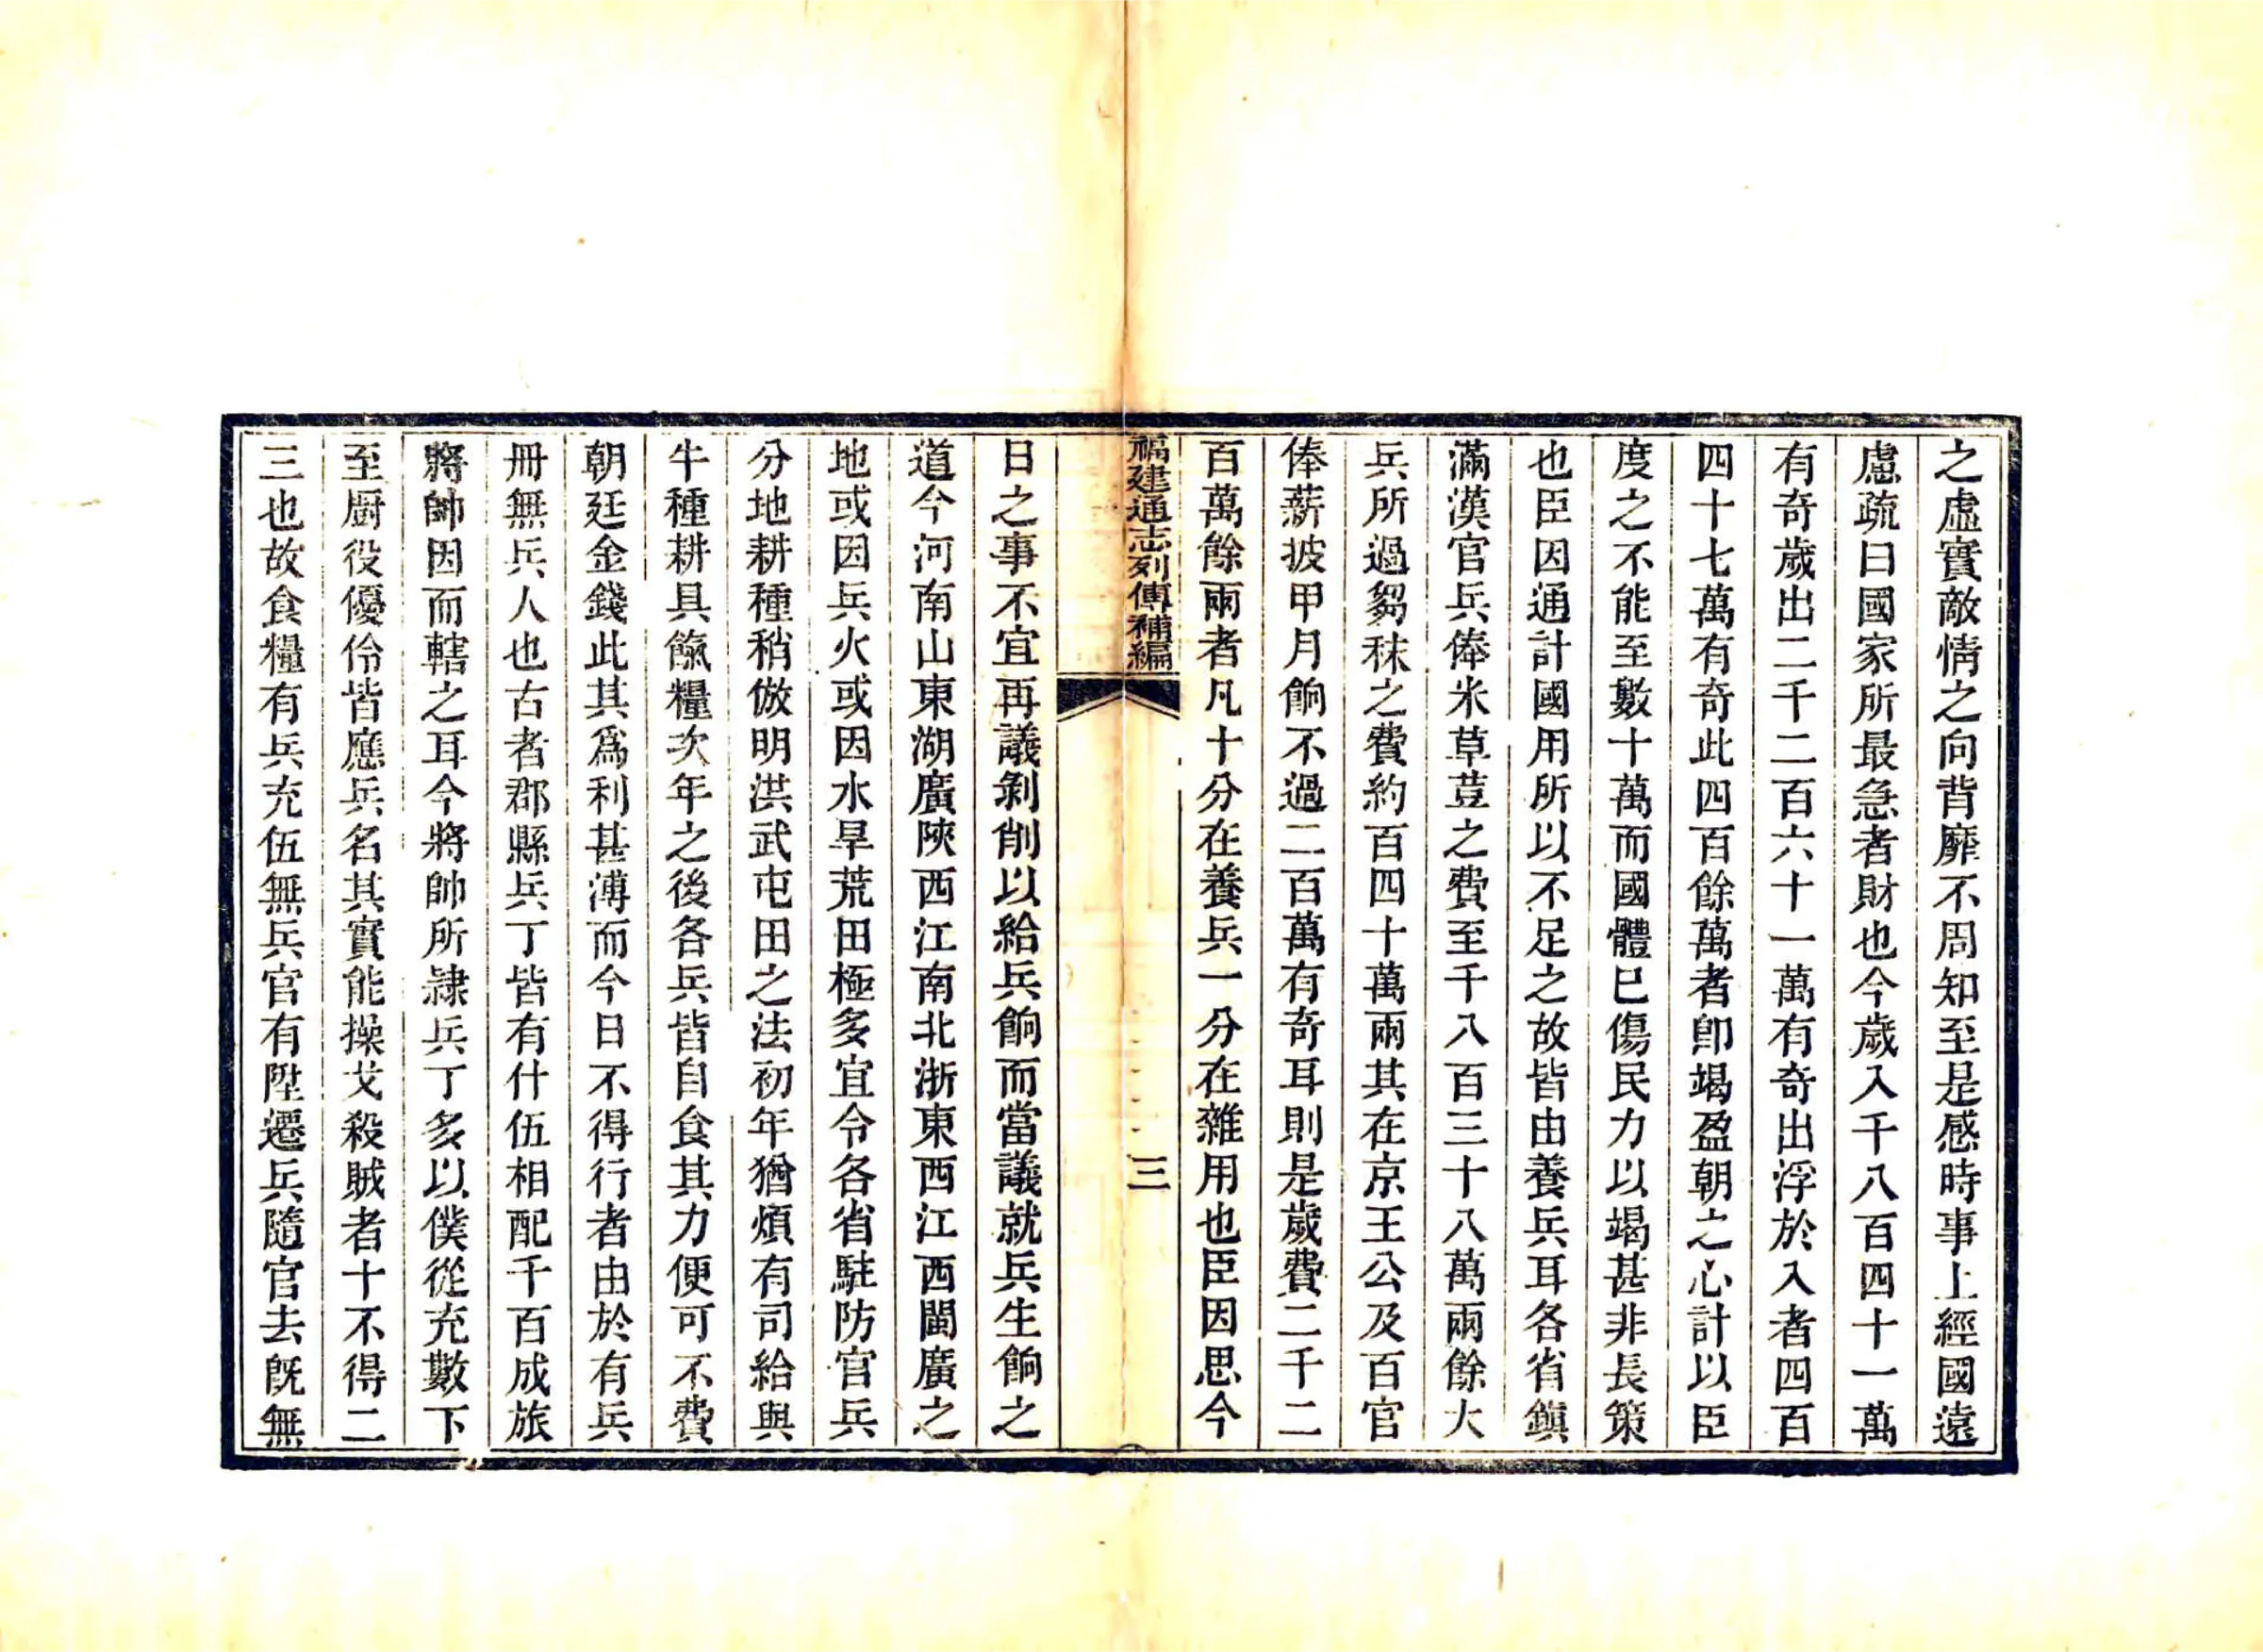 之虛實敵情之向背靡不周知至是感時事上經國遠
慮疏曰國家所最急者財也今歲入千八百四十一萬
有奇歲出二千二百六十一萬有奇出浮於入者四百
四十七萬有奇此四百餘萬者卽竭盈朝之心計以臣
度之不能至數十萬而國體已傷民力以竭甚非長策
也臣因通計國用所以不足之故皆由養兵耳各省鎭
滿漢官兵俸米草荳之費至千八百三十八萬兩餘大
兵所過芻秣之費約百四十萬兩其在京王公及百官
俸薪披甲月餉不過二百萬有奇耳則是歲費二千二
百萬餘兩者凡十分在養兵一分在雜用也臣因思今
福建通志列傳補編
三
日之事不宜再議剝削以給兵餉而當議就兵生餉之
道今河南山東湖廣陝西江南北浙東西江西閩廣之
地或因兵火或因水旱荒田極多宜令各省駐防官兵
分地耕種稍倣明洪武屯田之法初年猶煩有司給與
牛種耕具餼糧次年之後各兵皆自食其力便可不費
朝廷金錢此其爲利甚溥而今日不得行者由於有兵
冊無兵人也古者郡縣兵丁皆有什伍相配千百成旅
將帥因而轄之耳今將帥所隷兵丁多以僕從充數下
至厨役優伶皆應兵名其實能操戈殺賊者十不得二
三也故食糧有兵充伍無兵官有陞遷兵隨官去旣無